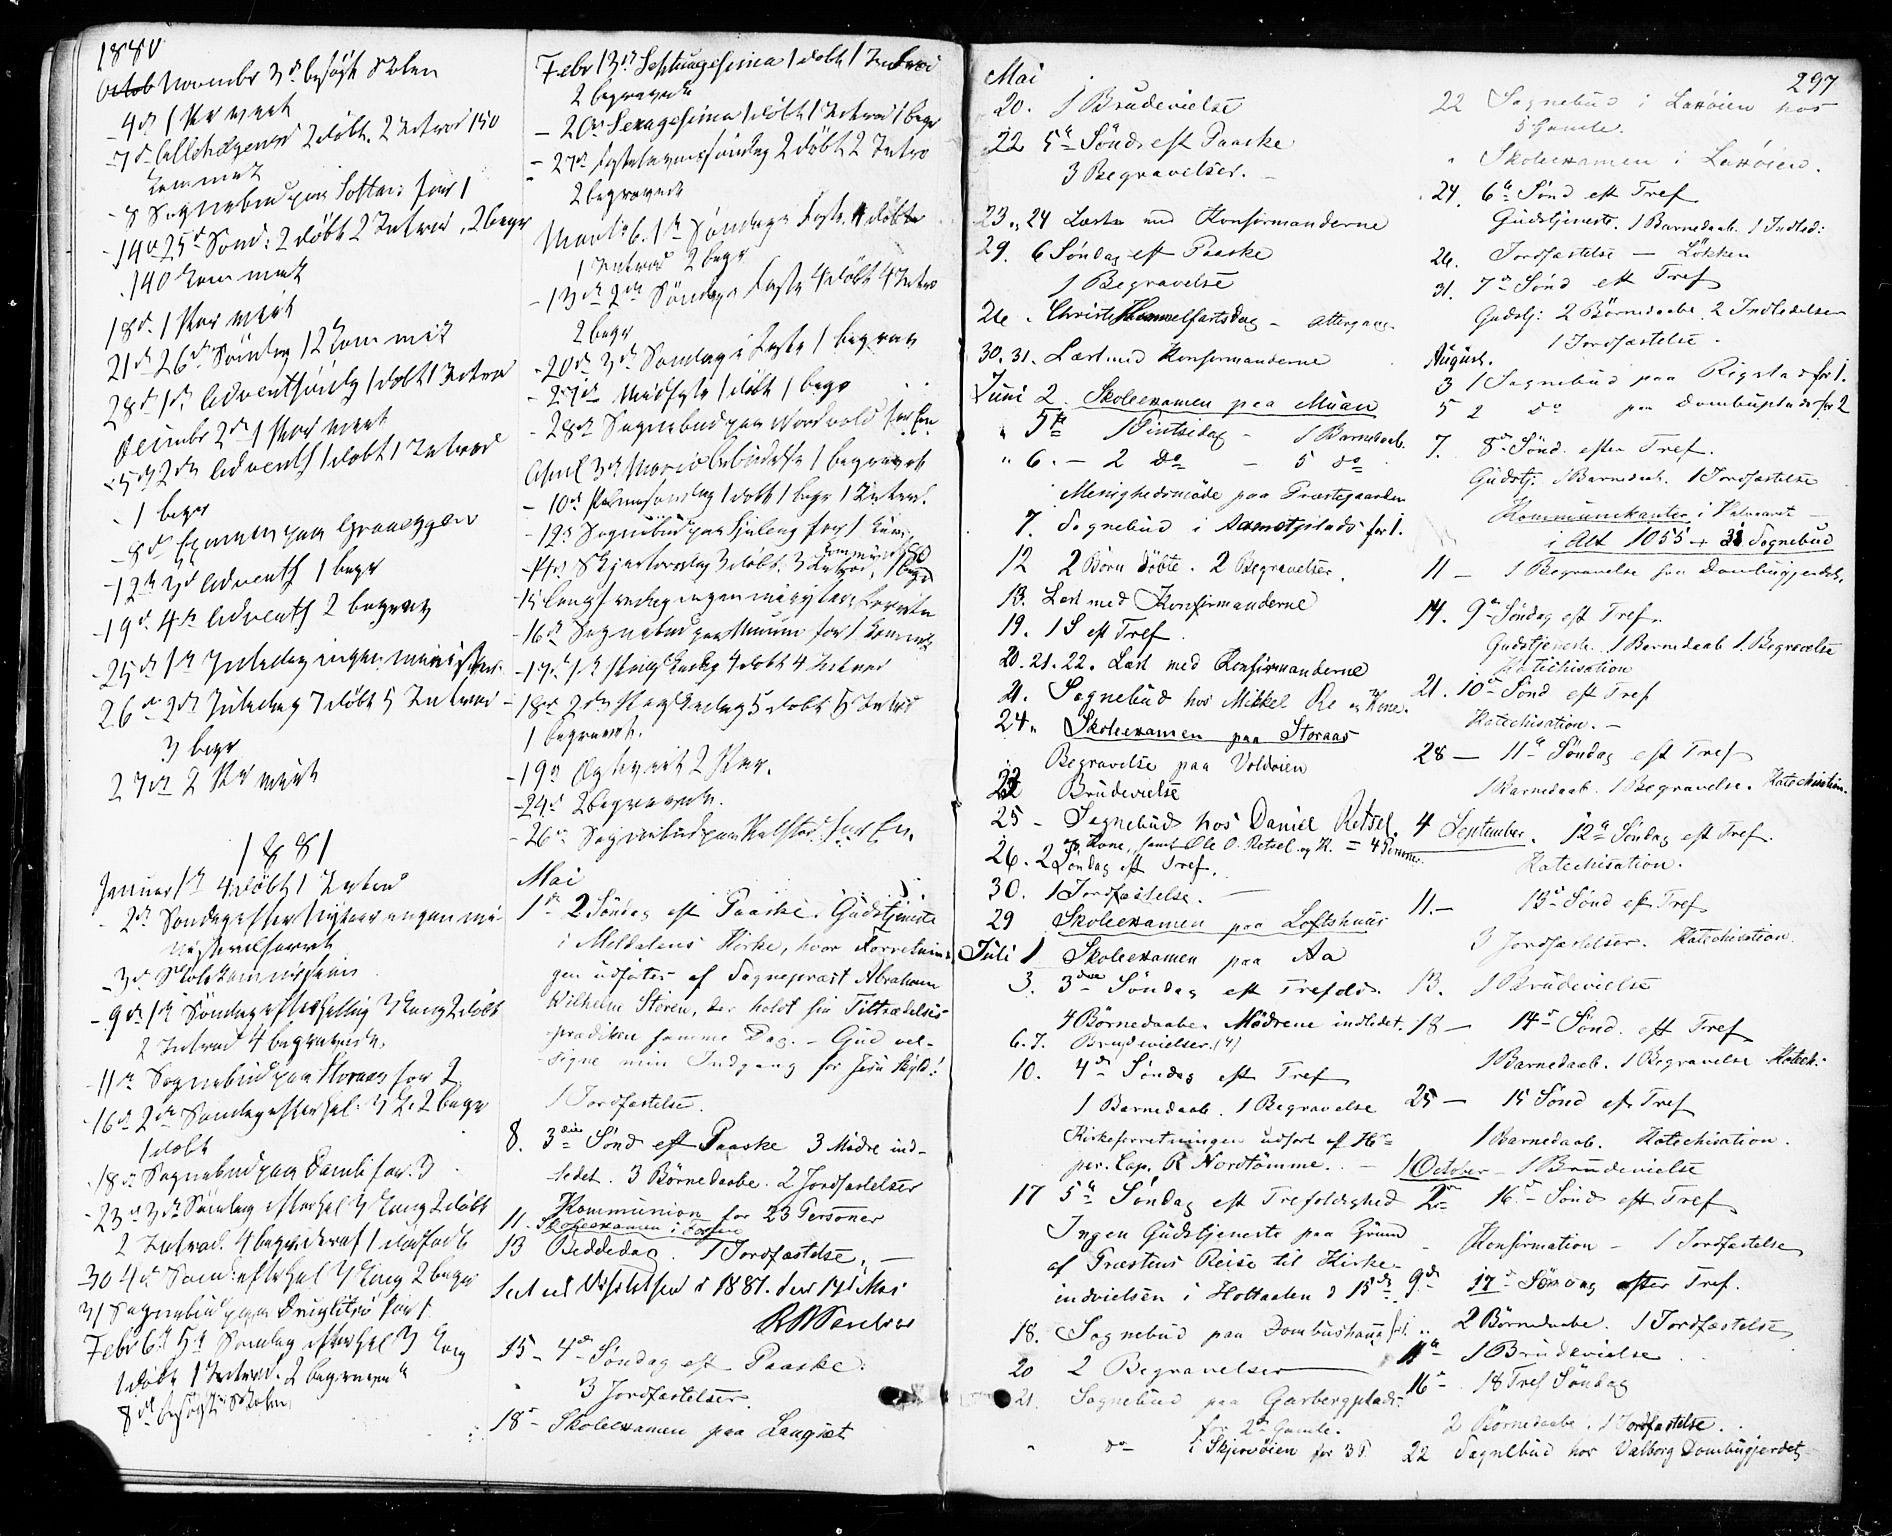 1880
November 3d besøgt Skolen
- 4d 1 Par viet
- 7d Allehelgensd 2 døbt. 2 Introd 150
Kommet
- 8 Sognebud paa for 1
- 14d 25d Sønd: 2 døbt 2 Introd, 2 begr
140 Kommet
18d. 1 Par viet
21d 26d Søndag 12 Kom
28d 1ste Adventsøndg 1 døbt 1 Introd
Decembr 2den 1 Par viet
5d 2den Advents 1 døbt 1 Introd
1 begr
- 8d Examen paa Graneggen
- 12te 3d Advents 1 begr
- 19d 4de Advents 2 begravet
- 25de 1ste Juledag ingen
26de 2den Juledag 7 døbt 5 Introd
3 begr
27de 2 Par viet
1881
Januar 1ste 4 døbt 1 Introd
- 2den Søndag efter Nytaar ingen
- 3d Skolekommission
- 9de 1ste Søndag efter Hellig 3 Kong 2 døbt
2 Introd 4 begravede.
- 11te Sognebud paa Storaas for 2
- 16d 2den Søndag efter Hel. 3 K. 2 begr
1 døbt
- 18de Sognebud paa for 3
- 23d 3die Søndag efter Hel 3 Kong 2 døbt
2 Introd. 4 begr deraf 1 dødfødt
- 30 4d Sønd: efter Hel 3 Kong 2 begr
31 Sognebud paa for 1
Febr 6te 5te Søndag efter Hel 3 Kong
1 døbt 1 Introd. 2 begravet
8de besøgt Skolen
Febr 13de Septuagesima 1 døbt 1 Introd
2 begravede
- 20de Sexagesima 1 døbt 1 Introd 1 begr
- 27de Fastelavnssøndag 2 døbt 2 Intro
2 begravede
Marts 6. 1ste Søndag i Faste. 4 døbte
1 Introd 2 begr
- 13de 2den Søndag i Faste 4 døbt 4 Intro
2 begr
- 20de 3die Søndag i Faste 1 begrav
- 27de Midfaste 1 døbt 1 begr
- 28de Sognebud paa for En
April 3die Mariæ Bebudelse 1 begravet
- 10de Palmesøndag 1 døbt 1 begr 1 Introd.
- 12te Sognebud paa for 1
- 14de Skjærtorsdag 3 døbt. 3 Introd, 1 begr
- 15 Langfredag ingen
- 16de Sognebud paa for 1
- 17de 1ste Paaskedag 4 døbt 4 Introd
- 18de 2den Paaskedag 5 døbt 5 Introd
1 begravet.
- 19de Ægteviet 2 Par.
- 24d 2 begravede.
- 26de Sognebud paa for En.
Mai
1ste 2 Søndag eft Paaske. Gudstjeneste
i Meldalens Kirke, hvor Forretnin-
gen udførtes af Sognepræst Abraham
Wilhelm Støren, der holdt sin Tiltrædelses-
prædiken samme Dag. - Gud vel-
signe min Indgang for Jesu Skyld!
1 Jordfæstelse.
8. 3die Sønd eft Paaske 3 Mødre ind-
ledet. 3 Børnedaabe. 2 Jordfæstelser
Kommunion for 23 Personer
11. Skoleexamen i
13 Beddedag. 1 Jordfæstelse. -
Seet ved Visitatsen i 1881. den 14de Mai
15 - 4de Søndag eft Paaske.
" 3 Jordfæstelser.
18de - Skoleexamen paa Langsæt
297
Mai
20. 1 Brudevielse
22 5te Sønd. eft Paaske
3 Begravelser. -
23 " 24 Læste med Konfirmanderne
29. 6 Søndag eft Paaske
1 Begravelse
26. Christi Himmelfartsdag - Altergang
30. 31. Læst med Konfirmanderne
Juni 2. Skoleexamen paa Muan
" 5te 1 Pintsedag - 1 Barnedaab.
" 6. - 2 do - 5 do
Menighedsmøde paa Præstegaarden
7. Sognebud i for 1.
12 2 Børn døbte. 2 Begravelser.
13. Læst med Konfirmanderne
19. 1 S eft Tref.
20. 21. 22. Læst med Konfirmanderne
21. Sognebud hos Mikkel Re og Kone.
24. Skoleexamen paa Storaas
Begravelse paa Voldøien
22 Brudevielse
25 - Sognebud hos Daniel Retsel.
og Kone, samt Ole O. Retsel og K. = 4 Personer
26. 2 Søndag eft Tref.
30. 1 Jordfæstelse. -
29 Skoleexamen paa Loftshuus
Juli 1 Skoleexamen paa Aa
3. 3die Søndag eft Trefoldi.
4 Børnedaabe. Mødrene indledet.
6. 7. Brudevielser. (4)
10. 4de Søndag eft Tref
1 Barnedaab. 1 Begravelse
Kirkeforretningen udført af Hr
per. Cap. R Nordtømme. -
17 5te Søndag eft Trefoldighed
Ingen Gudstjeneste paa Grund
af Præstens Reise til Kirke-
indvielsen i Holtaalen d 15de.
18. Sognebud paa Dombushaug for 1.
20 2 Begravelser
21. Sognebud paa Garbergplads
for 2de Gamle.
" do i Skjøvøien for 3 P.
22 Sognebud i Laxøien hos
5 Gamle.
" Skoleexamen i Laxøien.
24. 6te Sønd eft Tref
Gudstjeneste. 1 Barnedaab. 1 Indled:
26. Jordfæstelse - Løkken
31. 7de Sønd eft Tref
Gudstj: 2 Børnedaabe. 2 Indledelser
1 Jordfæstelse.
August.
3 1 Sognebud paa Rigstad for 1.
5 2 do paa for 2
7. 8de Sønd. efter Tref.
Gudstj. 1 Barnedaab. 1 Jordfæstelse
Kommunikanter i Halvaaret -
i Alt 1055 + 31 Sognebud
11 - 1 Begravelse fra Dombugjerdet.
14. 9de Søndag eft Tref.
Gudstjeneste. 1 Barnedaab 1 Begravelse
Katechisation
21. 10de Sønd eft Tref
Katechisation. -
28 - 11te Søndag eft Tref
1 Barnedaab. 1 Begravelse. Katechisation.
4 September. 12te Søndag eft Tref.
Katechisation.
11. - 13de Sønd eft Tref
3 Jordfæstelser. Katechisation
13. 1 Brudevielse
18 - 14de Sønd. eft Tref
1 Barnedaab. 1 Begravelse Katech.
25 - 15 Sønd eft Tref
1 Barnedaab. Katechisation.
1 October - 1 Brudevielse
2de 16de Sønd eft Tref
Konfirmation - 1 Jordfæstelse
9de 17de Søndag efter Tref.
2 Børnedaabe. 1 Jordfæstelse
11te 1 Brudevielse
16de 18 Tref Søndag
2 Børnedaabe. 1 Jordfæstelse.
22 Sognebud hos Valborg Dombugjerdet